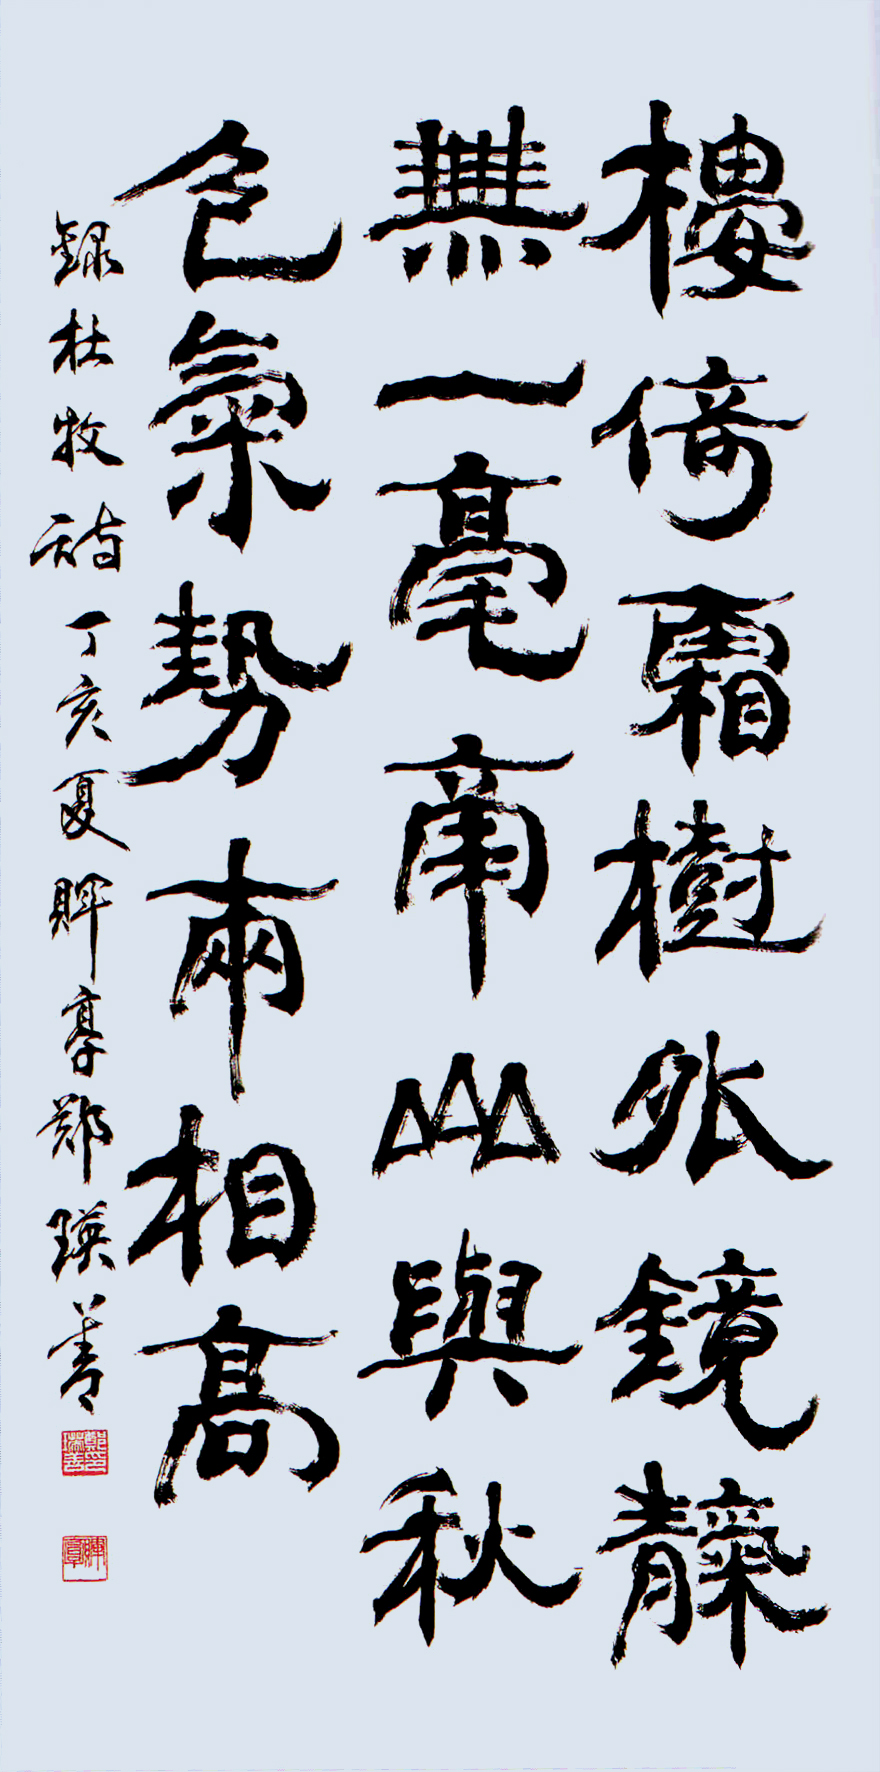 樓倚霜樹外鏡靝
無一毫南山與秋
色氣勢兩相高
録杜牧詩丁亥夏鄭瑛善